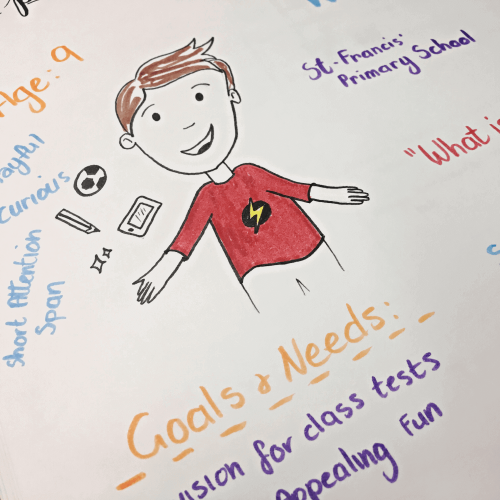 Age: 9
Curious
Short Attention
Span
St. Francis'
Primary School
"What is
Goals & Needs:
for class tests
Appealing Fun